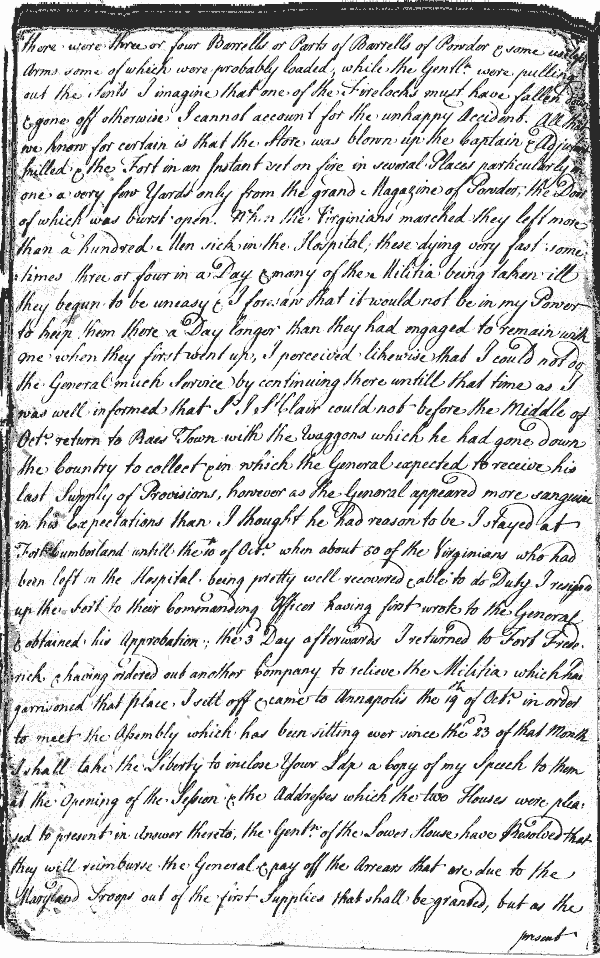 there were three or four Barrells or Parts of Barrells of Powder & some
Arms some of which were probably loaded, while the Gentn. were pulling
out the Tents I imagine that one of the Firelocks must have fallen down
& gone off otherwise I cannot account for the unhappy Accident. All that
we know for certain is that the Store was blown up the Captain & Adjutant
killed & the Fort in an Instant set on fire in several Places particularly in
one a very few Yards only from the grand Magazine of Powder, the Door
of which was burst open. When the Virginians marched they left more
than a hundred Men sick in the Hospital, these dying very fast some-
times three or four in a Day & many of the Militia being taken ill
they begun to be uneasy & I foresaw that it would not be in my Power
to keep them there a Day longer than they had engaged to remain with
me when they first went up, I perceived likewise that I could not do
the General much Service by continuing there untill that time as I
was well informed that Sr. J St. Clair could not before the Middle of
Octr. return to Raes Town with the Waggons which he had gone down
the Country to collect & in which the General expected to receive his
last Supply of Provisions, however as the General appeared more sanguine
in his Expectations than I thought he had reason to be I stayed at
Fort Cumberland untill the 10 of Octr. when about 50 of the Virginians who had
been left in the Hospital being pretty well recovered & able to do Duty I resignd
up the Fort to their Commanding Officer having first wrote to the General
& obtained his Approbation; the 3d Day afterwards I returned to Fort Frede-
rick & having ordered out another Company to relieve the Militia which has
garrisoned that place I sett off & came to Annapolis the 19th of Octr. in order
to meet the Assembly which has been sitting ever since the 23 of that Month
I shall take the Liberty to inclose Your Ldp a copy of my Speech to them
at the Opening of the Session & the Addresses which the two Houses were plea-
sed to present in Answer thereto, the Gentn. of the Lower House have Resolved that
they will reimburse the General & pay off the Arrears that are due to the
Maryland Troops out of the first Supplies that shall be granted, but as the
present